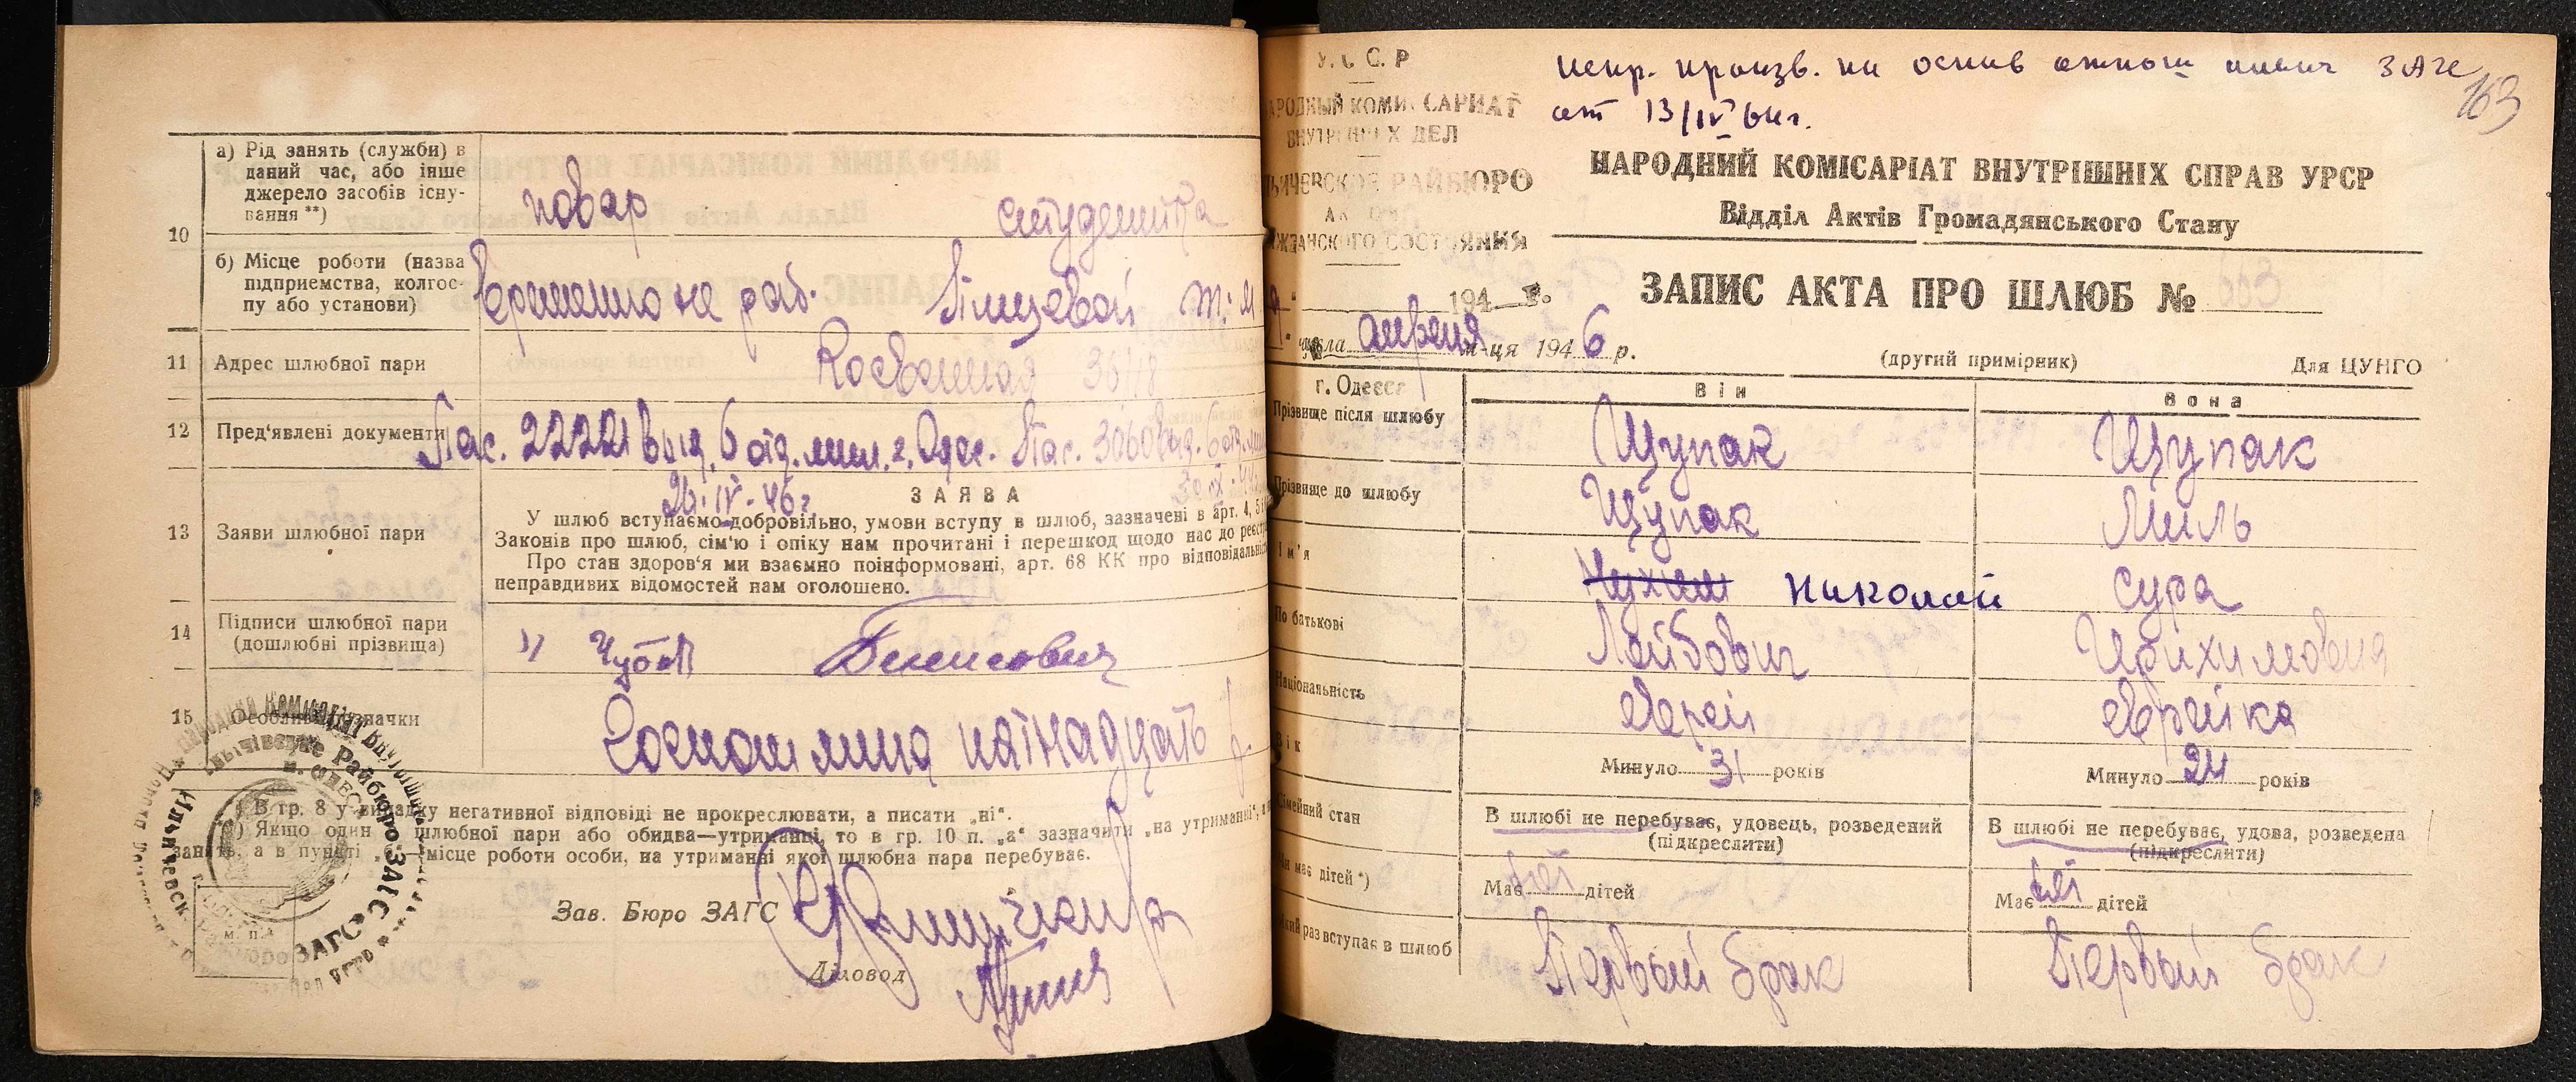 а) Рід занять (служби) в
даний час, або інше
джерело засобів існу-
вання **)
повар
студентка
10
б) Місце роботи (назва
підприємства, колгос-
пу або установи)
Временно не раб.
11
Адрес шлюбної пари
36
12
Пред'явлені документи
Пас. 22221 выд. 6 отд. мил. г. Одес. Пас.
26.IV-46 г.
13
Заяви шлюбної пари
ЗАЯВА
У шлюб вступаємо добровільно, умови вступу в шлюб, зазначені в арт. 4, 5
Законів про шлюб, сім'ю і опіку нам прочитані і перешкод щодо нас до
Про стан здоров'я ми взаємно поінформовані, арт. 68 КК про
неправдивих відомостей нам оголошено.
14
Підписи шлюбної пари
(дошлюбні прізвища)
1)
15
Особливі значки
пятнадцать
В гр. 8 у випадку негативної відповіді не прокреслювати, а писати „ні".
Якщо один шлюбної пари або обидва—утриманці, то в гр. 10 п. „а" зазначити „на утриманні",
а в пункті місце роботи особи, на утриманні якої шлюбна пара перебуває.
Зав. Бюро ЗАГС
Діловод
м. п.
Райбюро ЗАГС
У. С. С. Р
НАРОДНЫЙ КОМИССАРИАТ
ВНУТРЕННИХ ДЕЛ
РАЙБЮРО
СОСТОЯНИЯ
194 г.
испр. произв. на основ
от 13/IV 64 г.
163
НАРОДНИЙ КОМІСАРІАТ ВНУТРІШНІХ СПРАВ УРСР
Відділ Актів Громадянського Стану
ЗАПИС АКТА ПРО ШЛЮБ №
числа апреля м-ця 1946 р.
(другий примірник)
Для ЦУНГО
г. Одесса
Він
Вона
Прізвище після шлюбу
Щупак
Щупак
Прізвище до шлюбу
Щупак
Миль
Ім'я
Нухим Николай
Сура
По батькові
Лейбович
Національність
еврей
еврейка
Вік
Минуло 31 років
Минуло 24 років
Сімейний стан
В шлюбі не перебуває, удовець, розведений
(підкреслити)
В шлюбі не перебуває, удова, розведена
(підкреслити)
Чи має дітей *)
Має нет дітей
Має нет дітей
Який раз вступає в шлюб
Первый брак
Первый брак